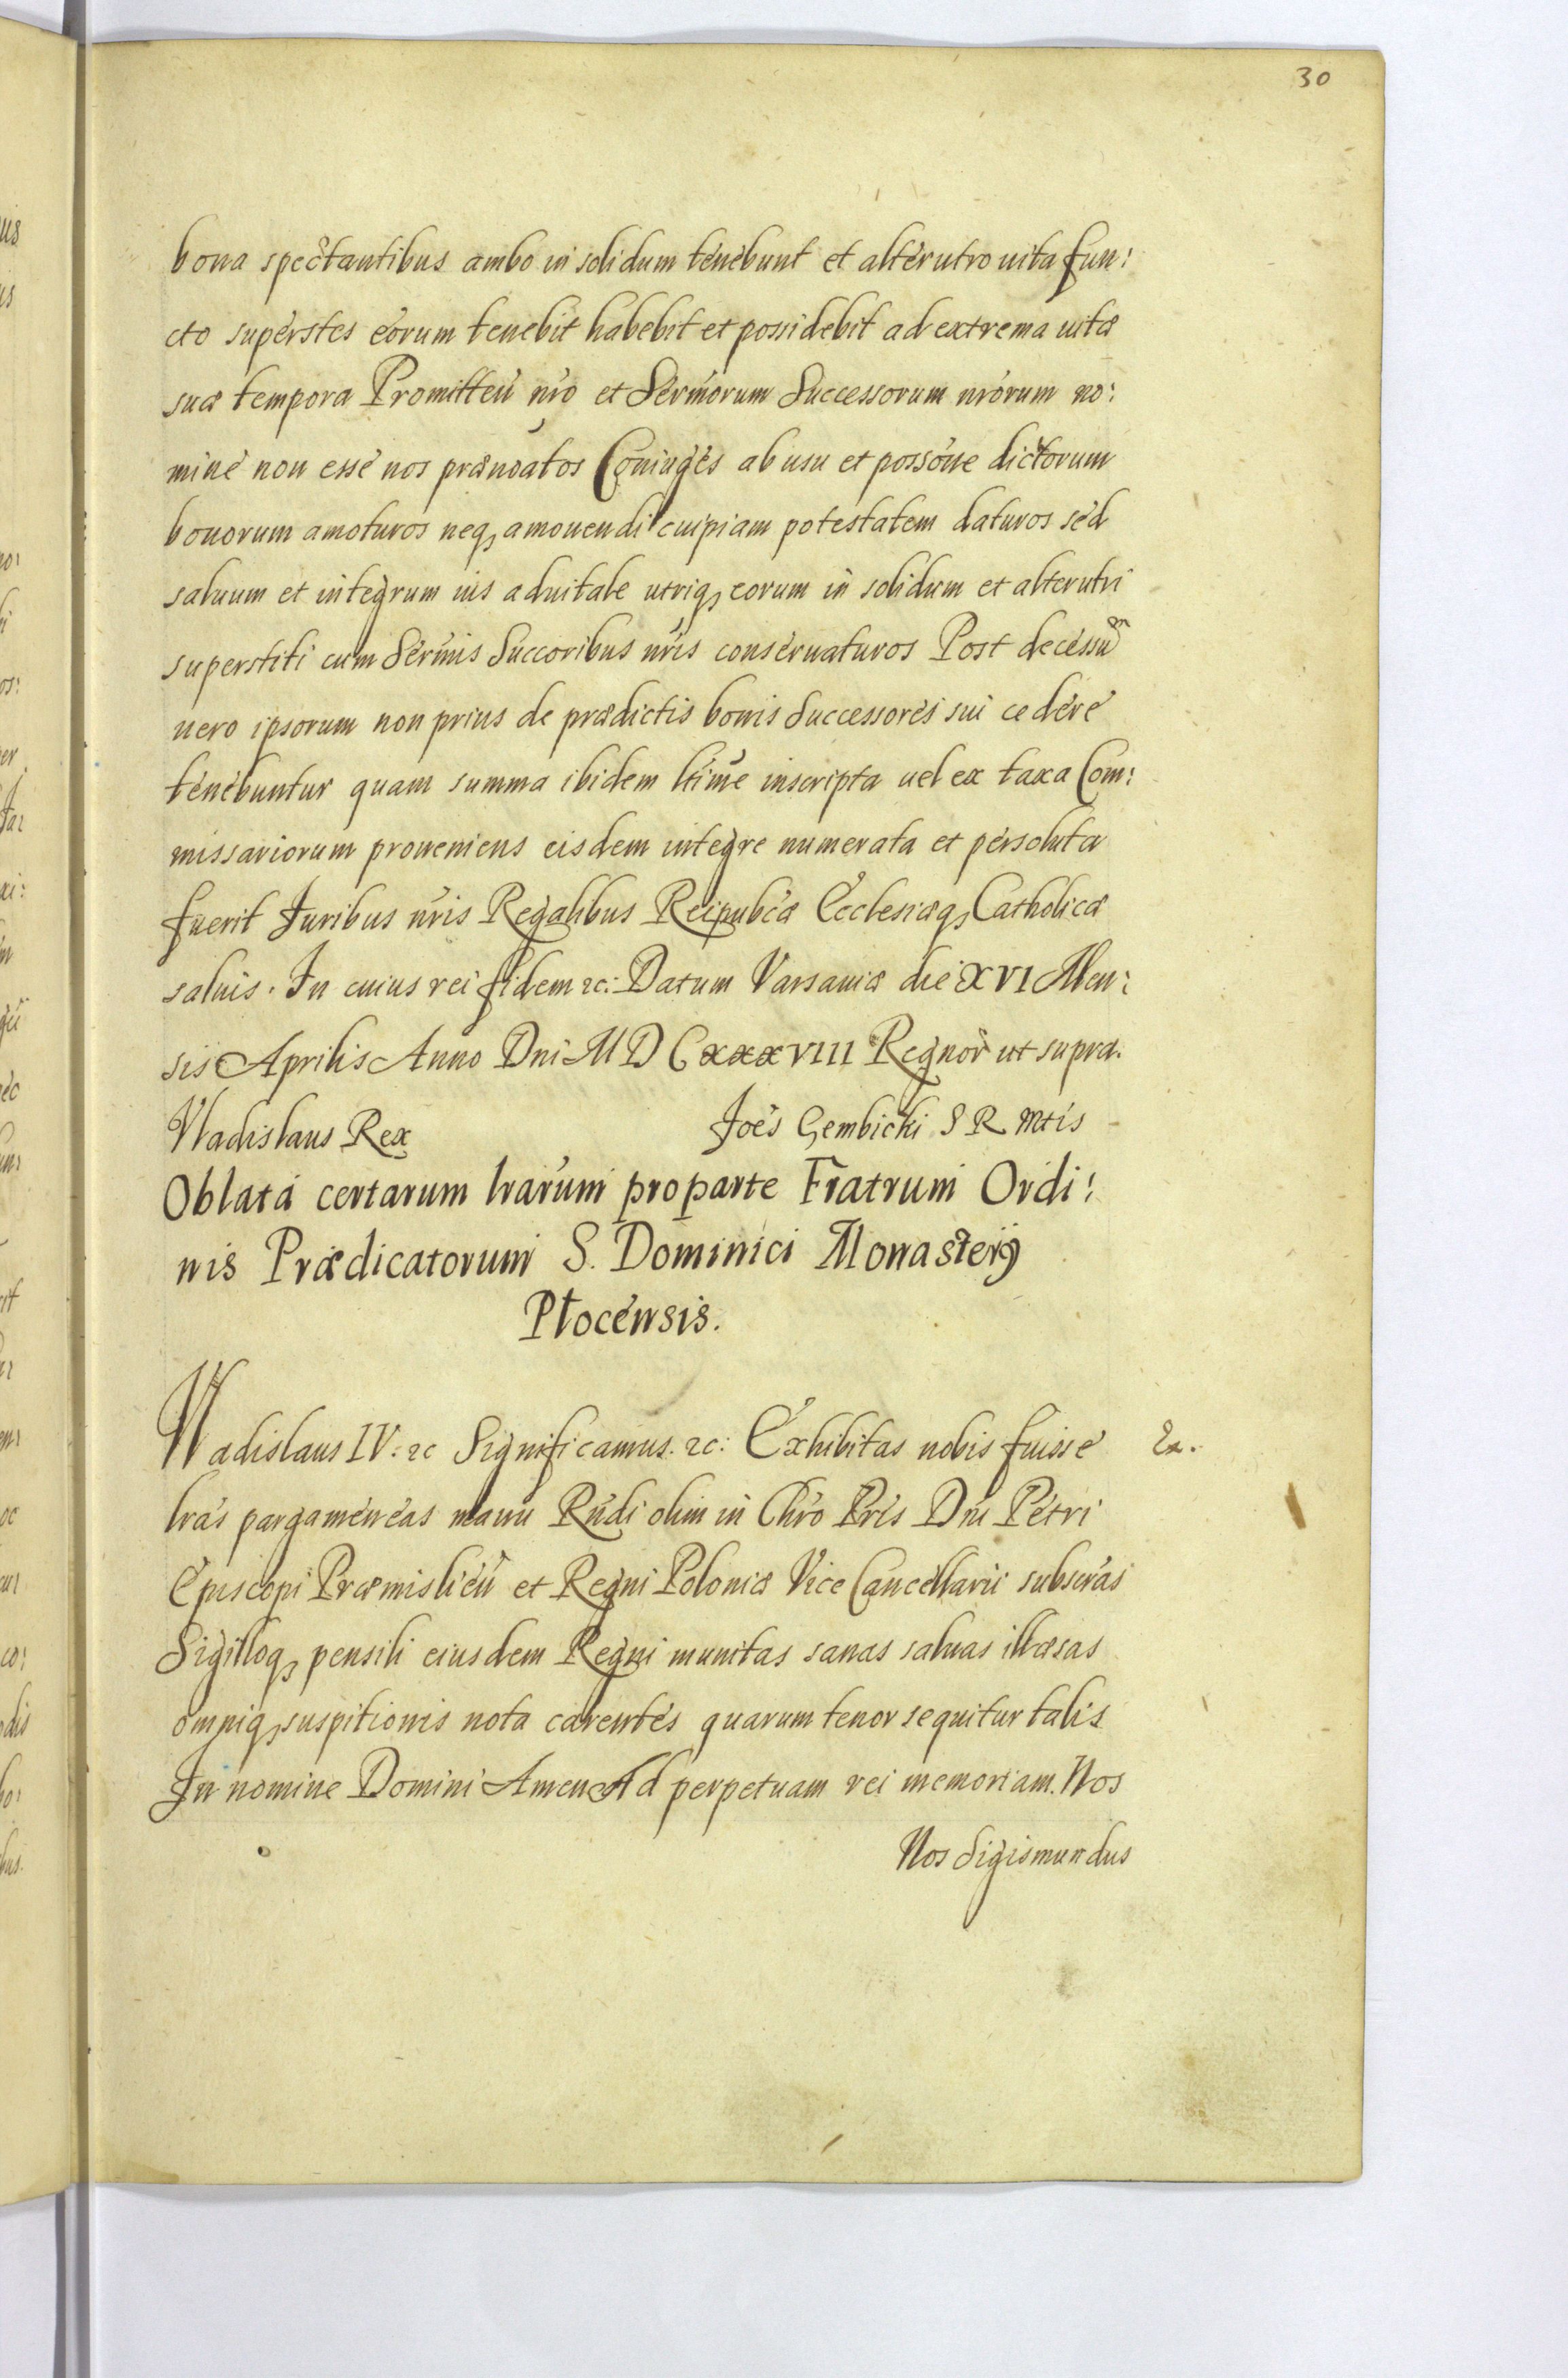 30
bona spectantibus ambo in solidum tenebunt et alterutro uita fun:
cto superstes eorum tenebit habebit et possidebit ad extrema uitæ
suæ tempora Promitteñ nro et Sermorum Successorum nrorum no:
mine non esse nos prænoatos Coniuges ab usu et possone dictorum
bonorum amoturos neq, amouendi cuipiam potestatem daturos sed
saluum et integrum ius aduitale utriq, eorum in solidum et alterutri
superstiti cum Sermis Succoribus nris conseruaturos Post decessum
uero ipsorum non prius de prædictis bonis Successores sui cedere
tenebuntur quam summa ibidem ltime inscripta uel ex taxa Com:
missariorum proueniens eisdem integre numerata et persoluta
fuerit Juribus nris Regalibus Reipubcæ Ecclesiæq, Catholicæ
saluis. In cuius rei fidem &c: Datum Varsauiæ die XVI Men:
sis Aprilis Anno Dni MDCXXXVIII Regnor ut supra.
Vladislaus Rex Joes Gembicki S R Mtis
Oblata certarum lrarum pro parte Fratrum Ordi:
nis Prædicatorum S. Dominici Monasterij
Plocensis.
Vladislaus IV. &c Significamus. &c: Exhibitas nobis fuisse
Ex.
lras pargameneas manu Rndi olim in Chro Pris Dni Petri
Episcopi Præmislieñ et Regni Poloniæ Vice Cancellarii subscras
Sigilloq, pensili eiusdem Regni munitas sanas saluas illæsas
omniq, suspitionis nota carentes quarum tenor sequitur talis
In nomine Domini Amen Ad perpetuam rei memoriam. Nos
Nos Sigismundus